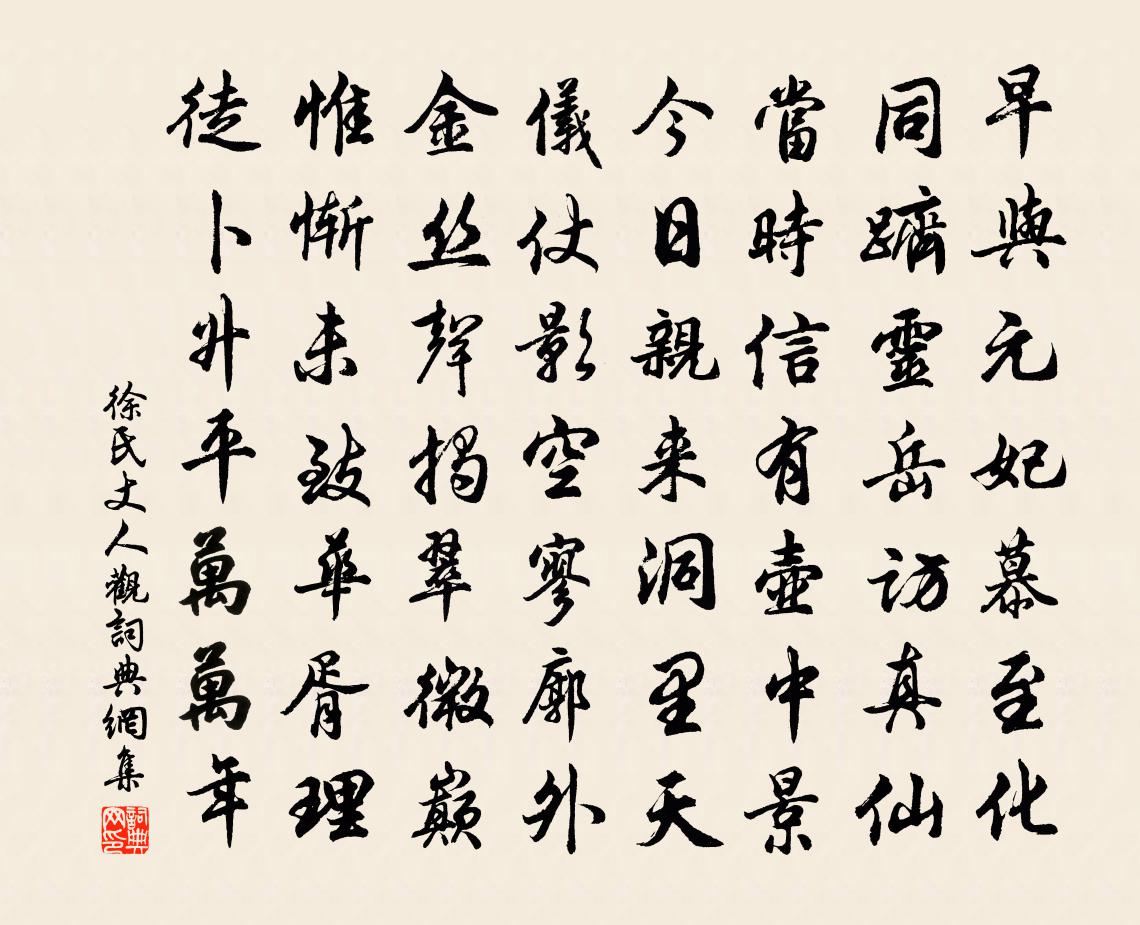 早與元妃慕至化
同躋靈岳訪真仙
當時信有壺中景
今日親来洞里天
儀仗影空寥廓外
金丝聲揭翠微巔
惟慚未致華胥理
徒卜升平萬萬年
徐氏丈人觀詞典網集
詞典网印